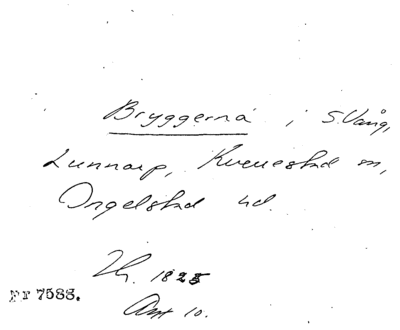 Bryggerna i S.Vång,
Lunnarp, Kverrestad sn,
Ingelstad hd.
Th. 1825
Ant 10.
pr 7588.